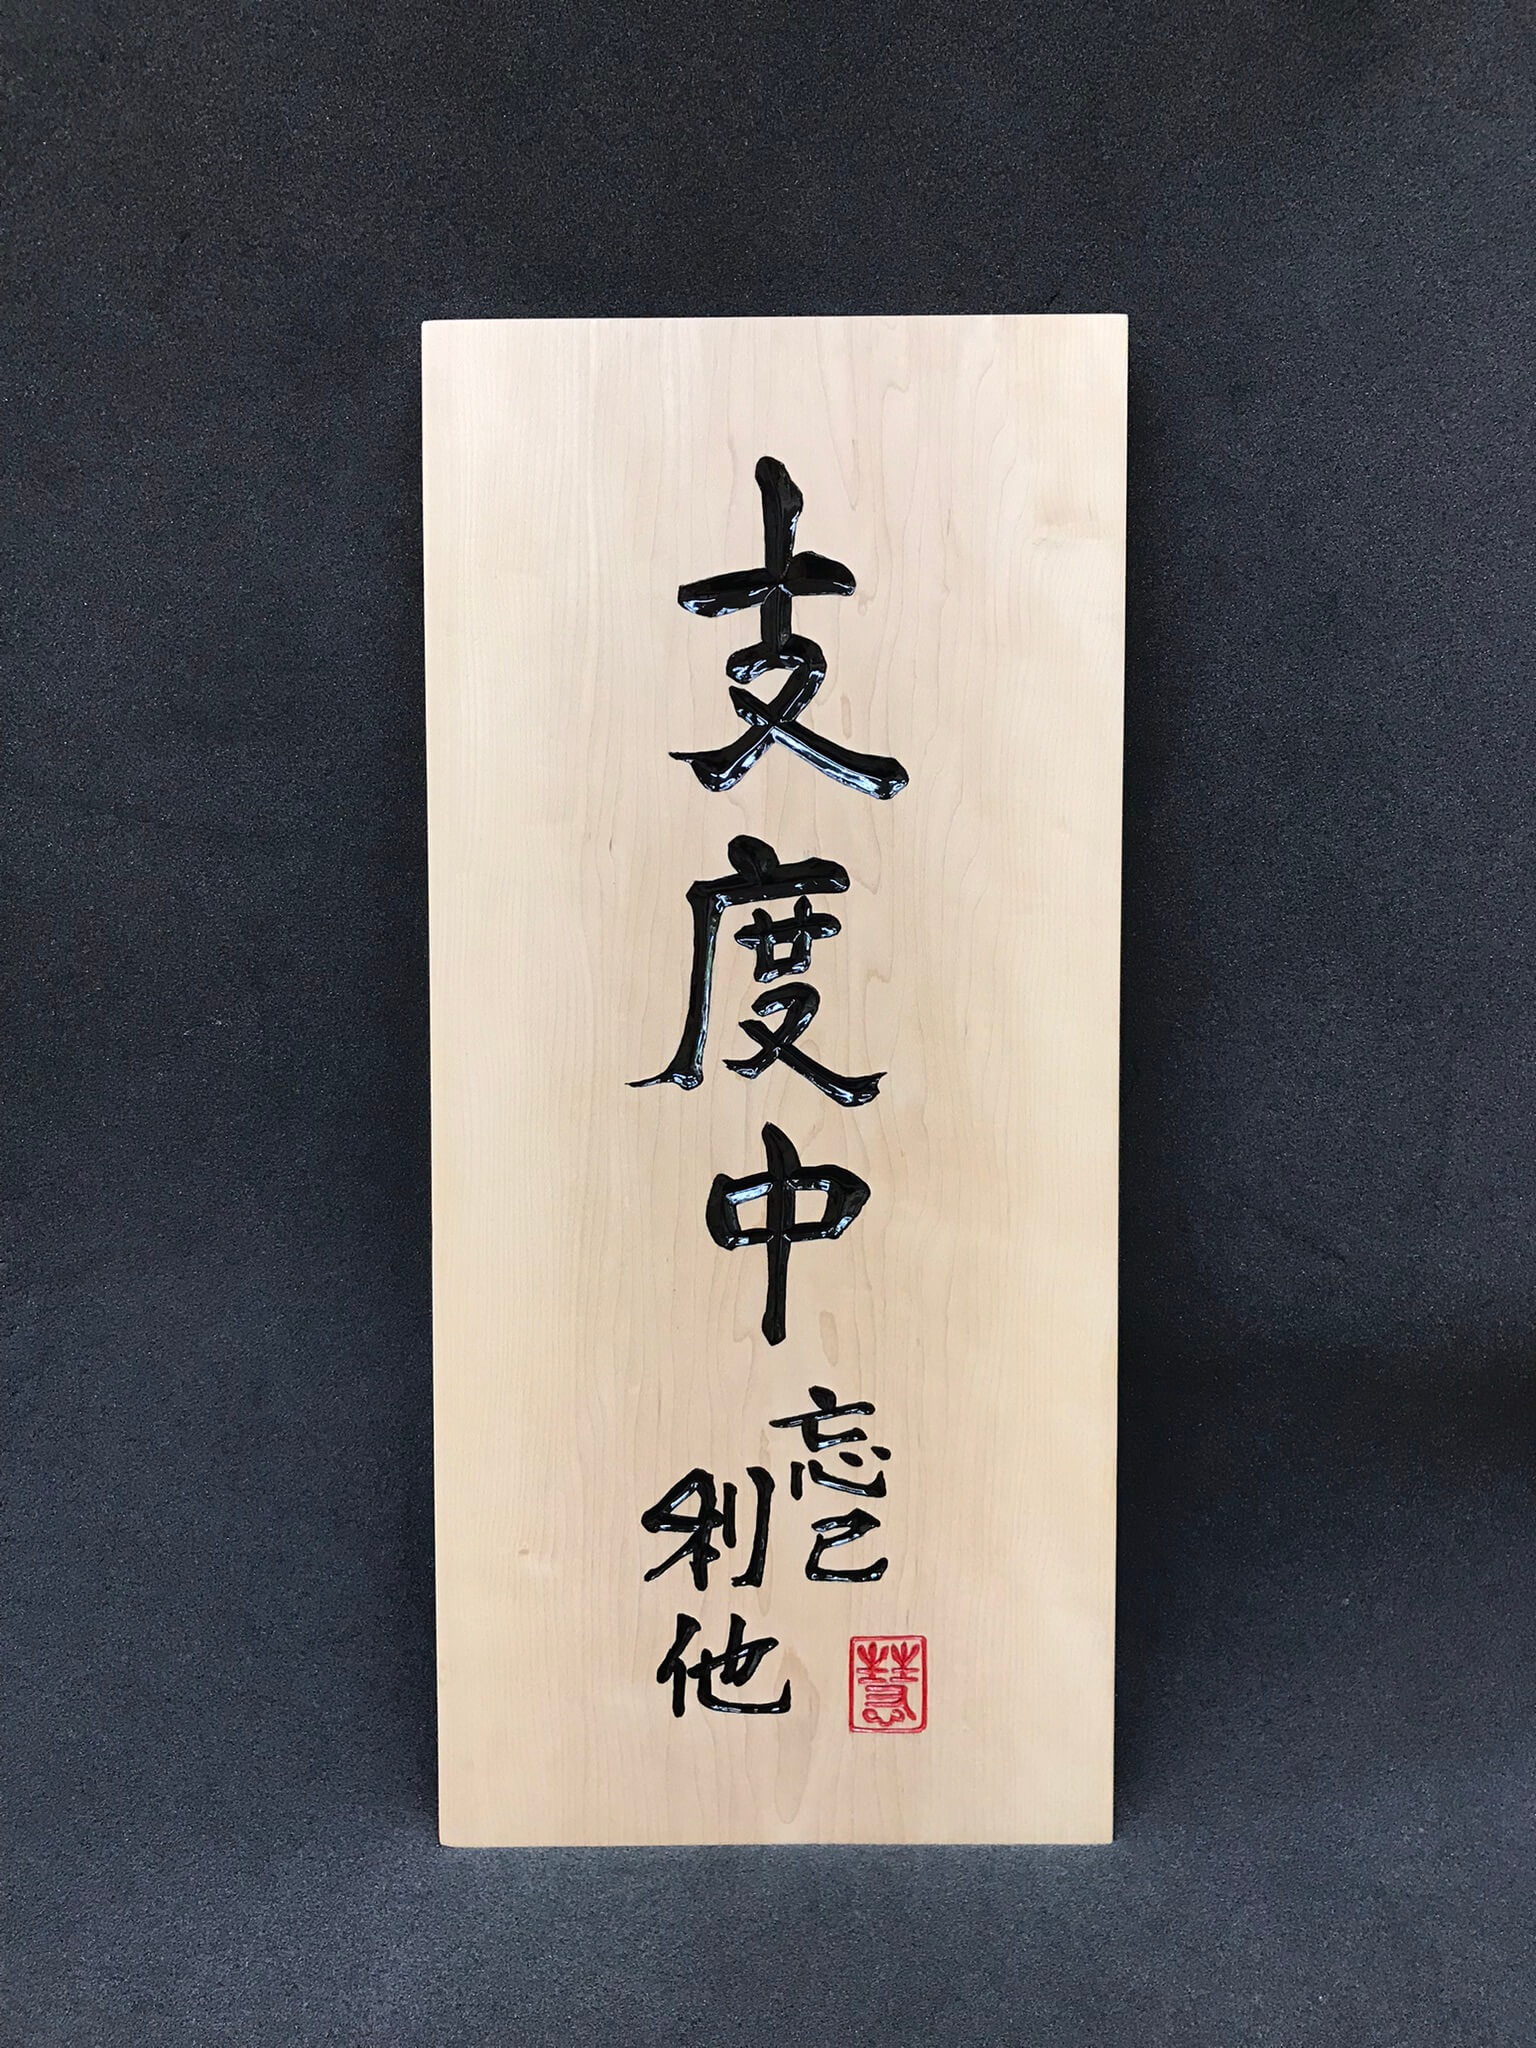 支度中
忘己
利他
慧